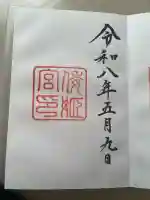 令和八年五月九日
倭姫
宮印